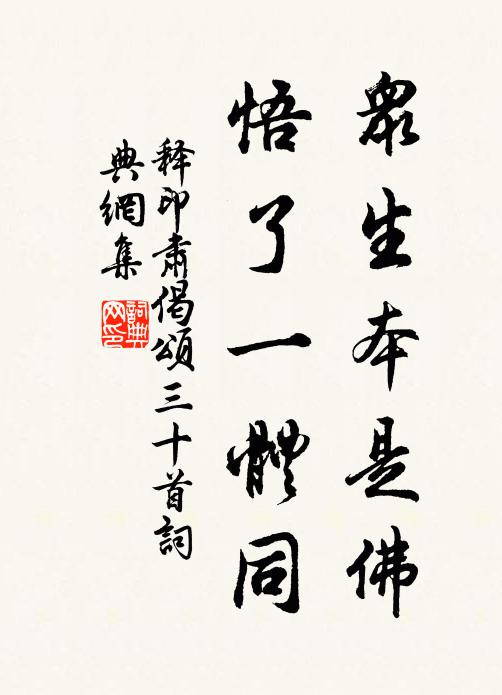 眾生本是佛
悟了一體同
釋印肅偈頌三十首詞
典網集
詞典
网印